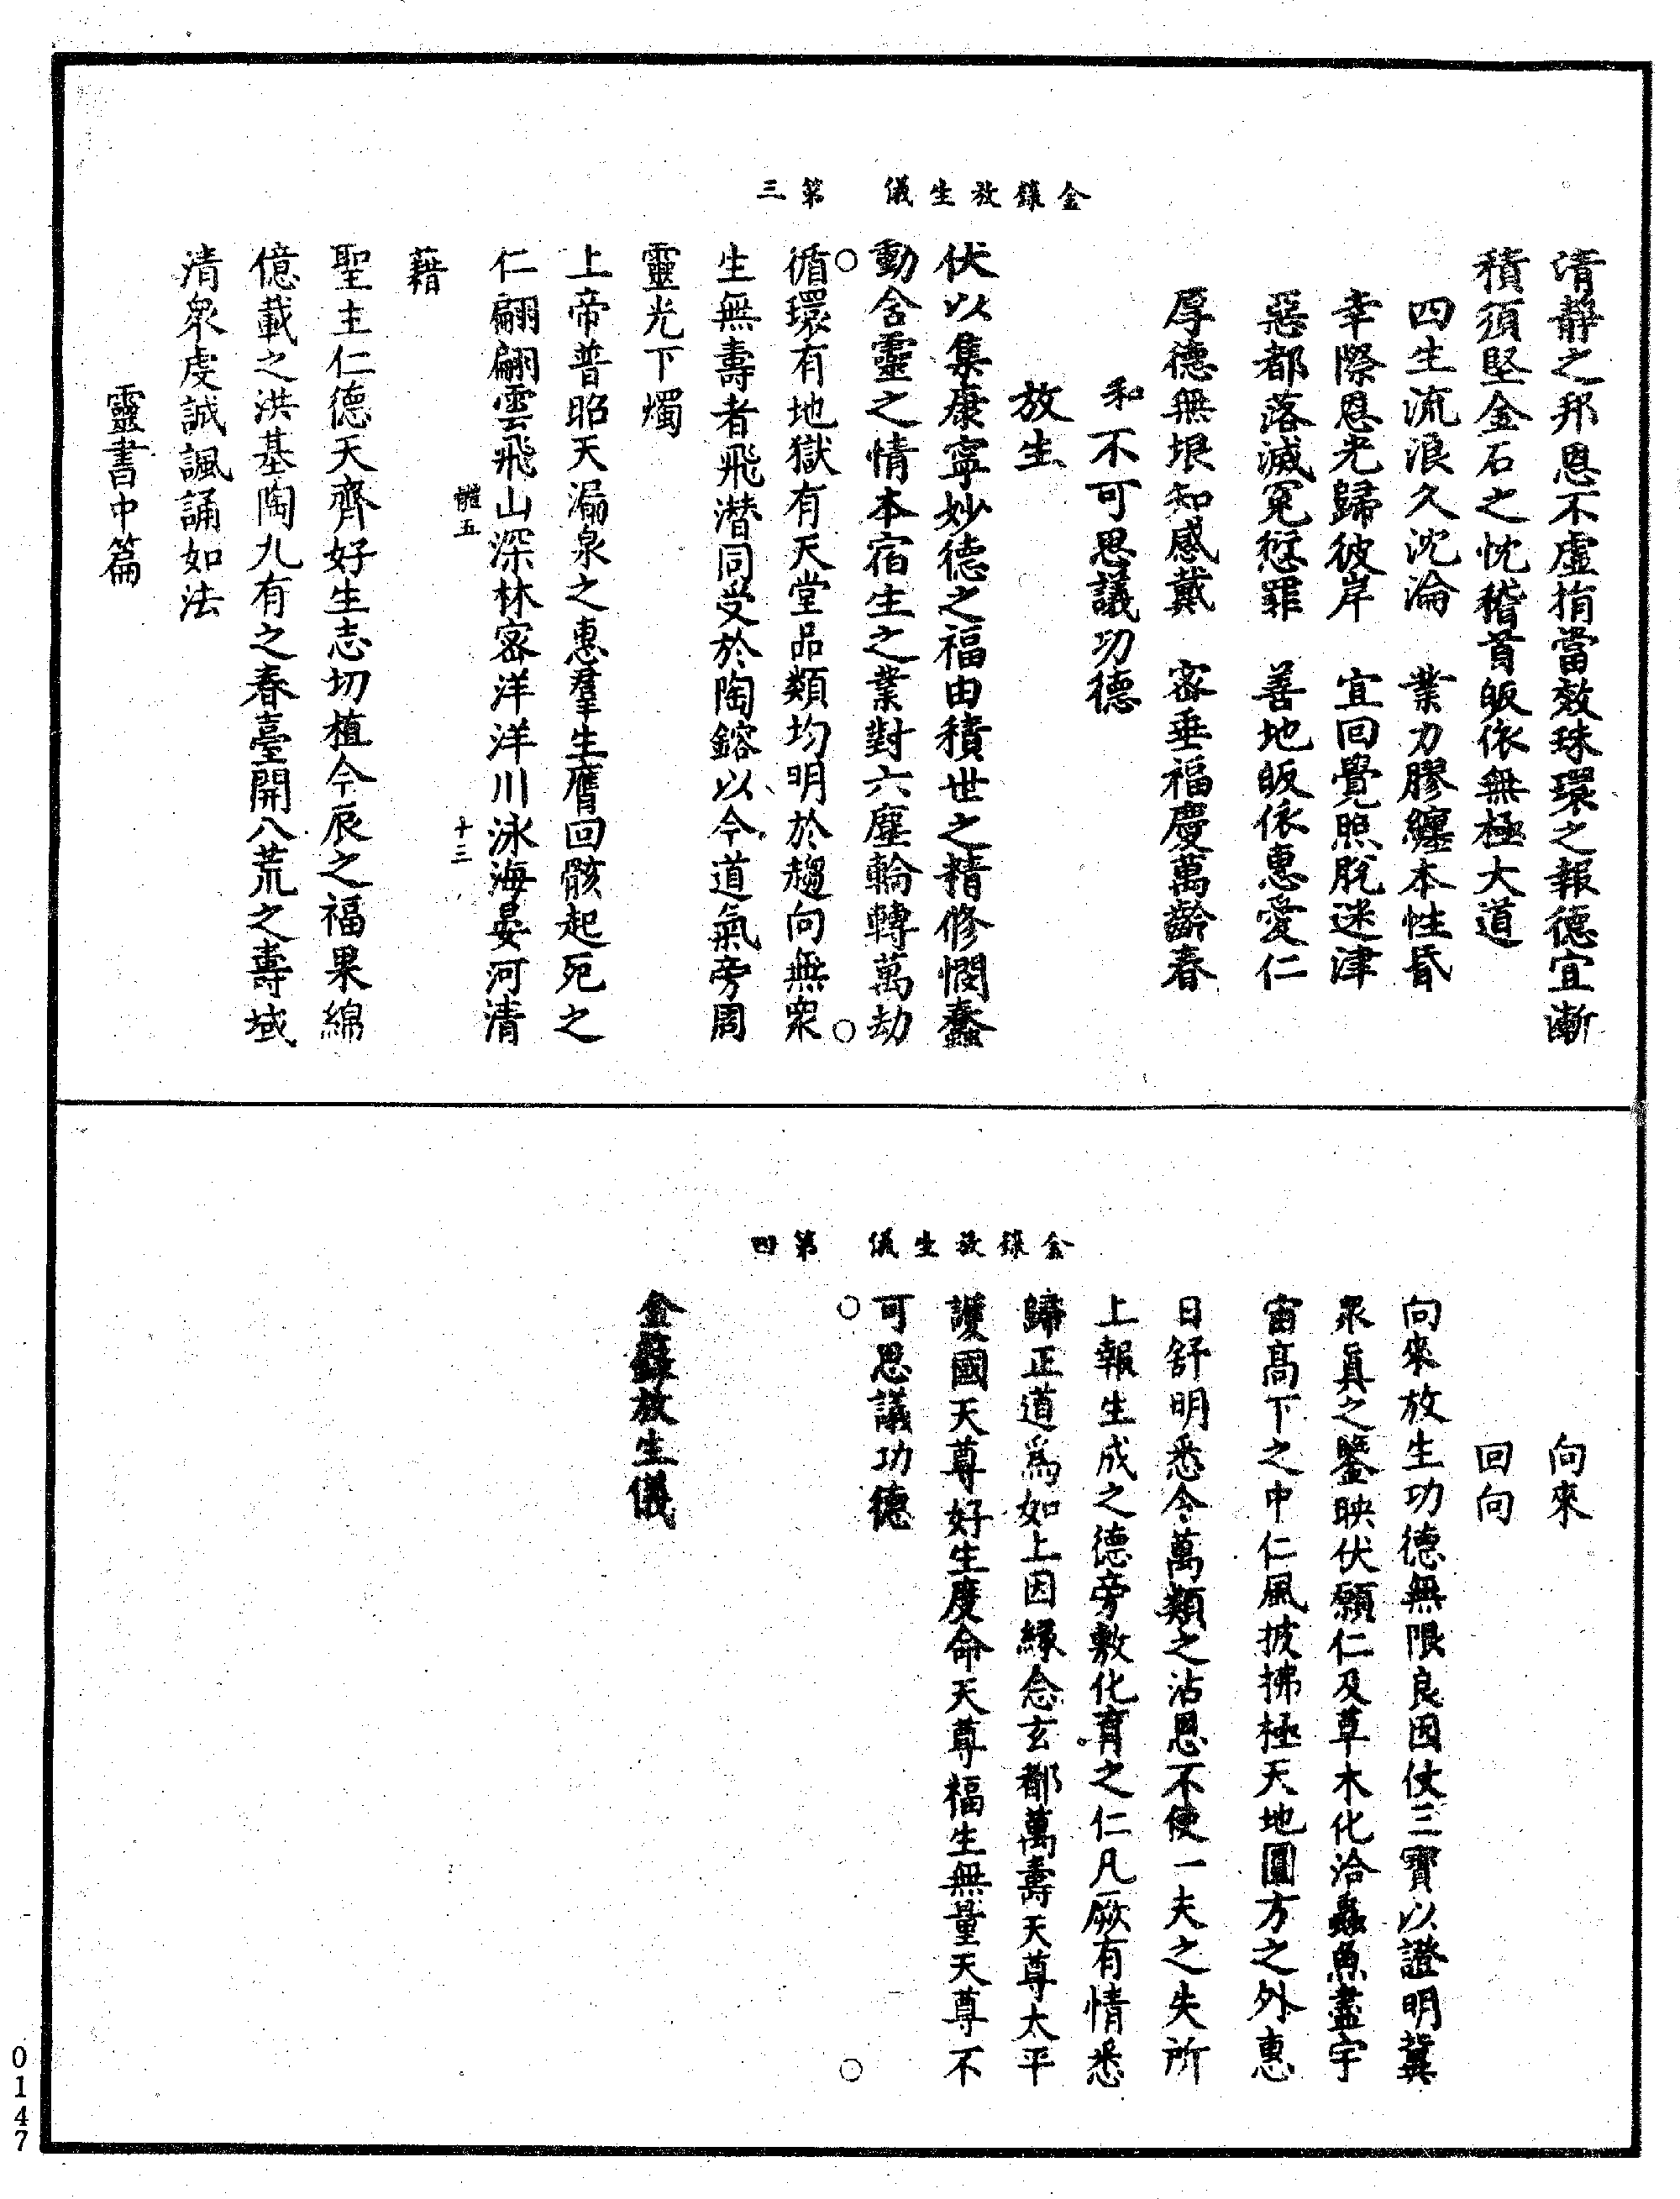 金籙放生儀　第三
清靜之邦恩不虛捐當效珠環之報德宜漸
積須堅金石之忱稽首皈依無極大道
四生流浪久沈淪　業力膠纏本性昏
幸際恩光歸彼岸　宜回覺照脫迷津
惡都落滅冤愆罪　善地皈依惠愛仁
厚德無垠知感戴　密垂福慶萬齡春
和不可思議功德
放生
伏以集康寧妙德之福由積世之精修憫蠢
動含靈之情本宿生之業對六塵輪轉萬劫
循環有地獄有天堂品類均明於趨向無眾
生無壽者飛潛同受於陶鎔以今道氣旁周
靈光下燭
上帝普昭天漏泉之惠羣生膺回骸起死之
仁翩翩雲飛山深林密洋洋川泳海晏河清
體五　十三
藉
聖主仁德天齊好生志切植今辰之福果綿
億載之洪基陶九有之春臺開八荒之壽域
清眾虔誠諷誦如法
靈書中篇
金籙放生儀　第四
向來
回向
向來放生功德無限良因仗三寶以證明冀
眾真之鑒映伏願仁及草木化洽蟲魚盡宇
宙高下之中仁風披拂極天地圓方之外惠
日舒明悉令萬類之沾恩不使一夫之失所
上報生成之德旁敷化育之仁凡厥有情悉
歸正道為如上因緣念玄都萬壽天尊太平
護國天尊好生度命天尊福生無量天尊不
可思議功德
金籙放生儀
0147